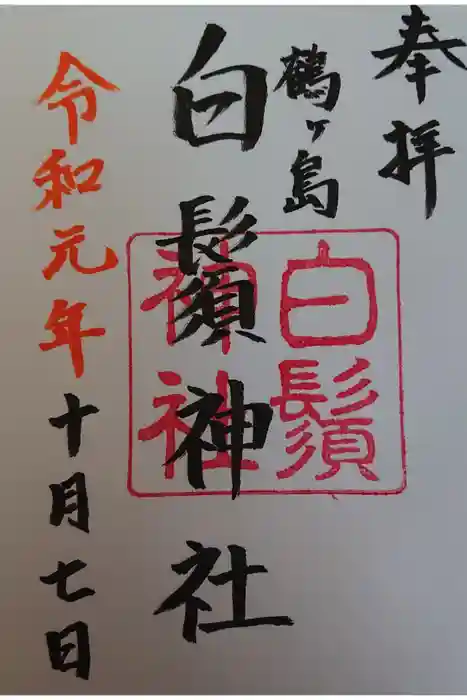 奉拝
鶴ヶ島
白鬚神社
白鬚
神社
令和元年十月七日